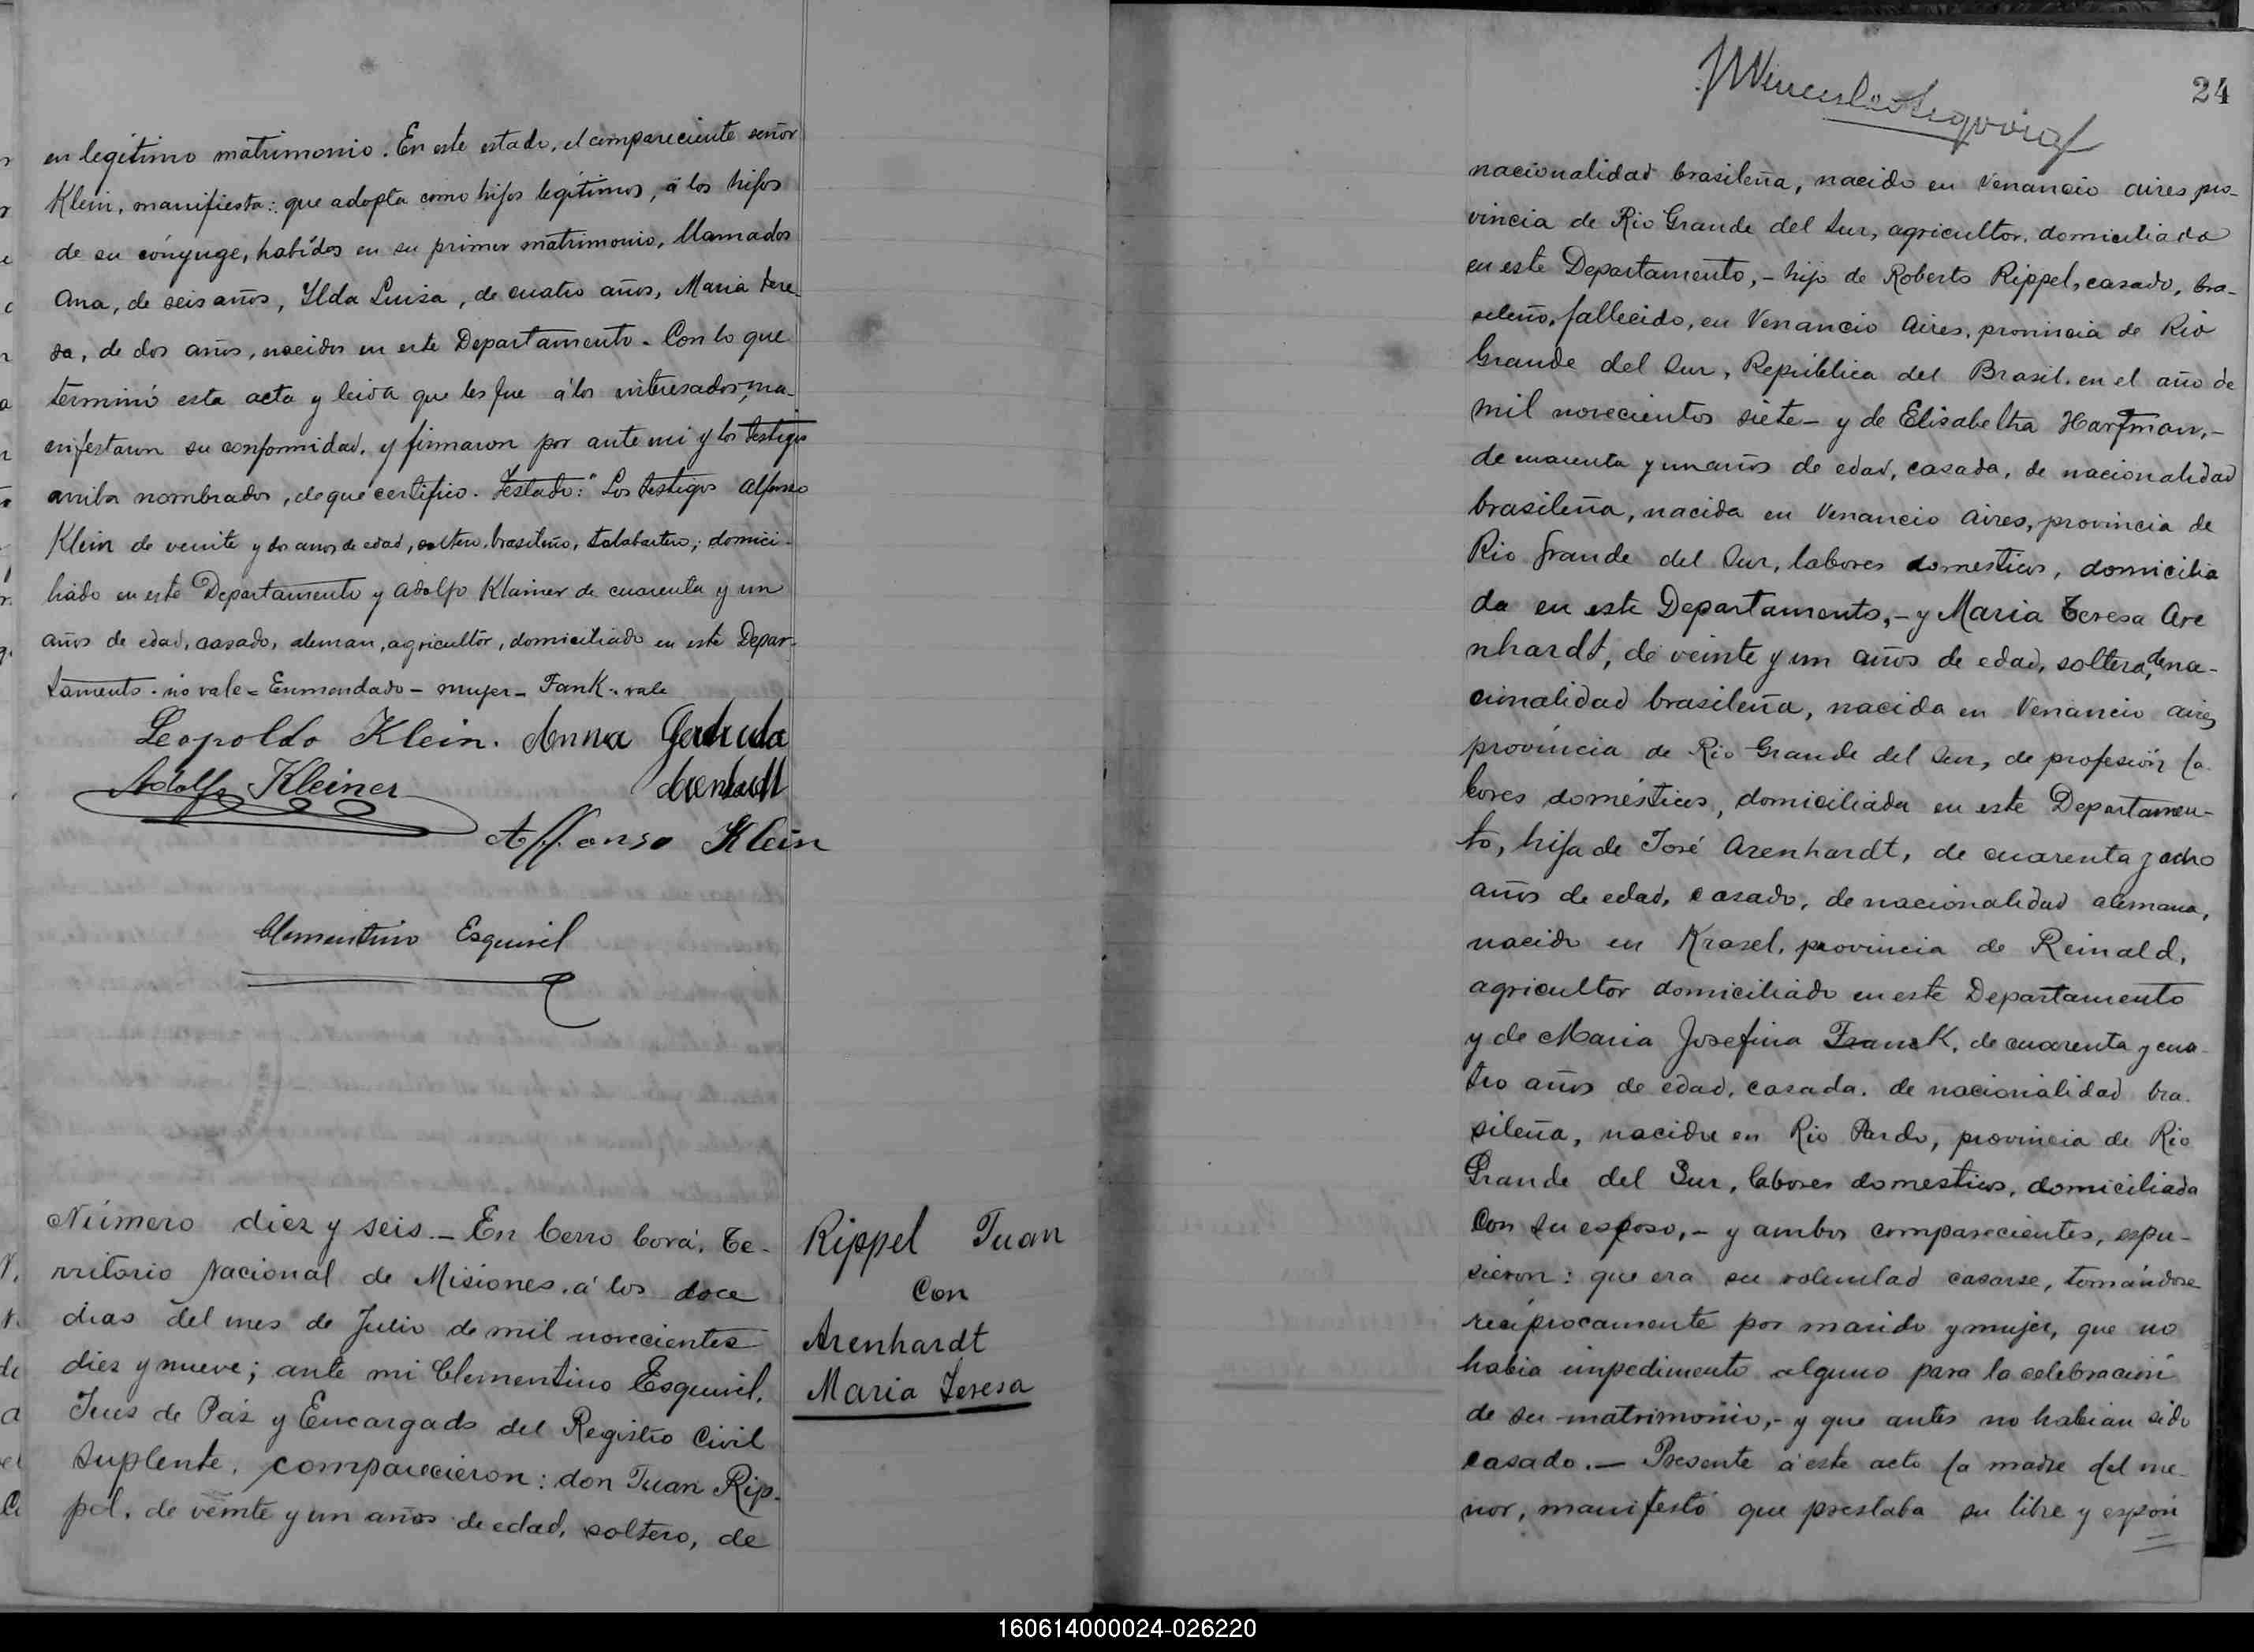 en legítimo matrimonio. En este estado, el compareciente señor
Klein, manifiesta: que adopta como hijos legítimos, á los hijos
de su cónyuge, habidos en su primer matrimonio, llamados
Ana, de seis años, Ylda Luisa, de cuatro años, Maria Tere-
sa, de dos años, nacidos en este Departamento. Con lo que
terminó esta acta y leida que les fue á los interesados, ma-
nifestaron su conformidad, y firmaron por ante mi y los testigos
arriba nombrados, de que certifico. Testado: "Los testigos Alfonso
Klein de veinte y dos años de edad, soltero, brasileño, talabartero, domici-
liado en este Departamento y Adolfo Klainer de cuarenta y un
años de edad, casado, aleman, agricultor, domiciliado en este Depar-
tamento. no vale = Enmendado - mujer - Fank. vale
Leopoldo Klein. Anna
Adolfo Kleiner
Affonso Klein
Clementino Esquivil
Número diez y seis. - En Cerro Corá, Te-
rritorio Nacional de Misiones, á los doce
dias del mes de Julio de mil novecientos
diez y nueve; ante mi Clementino Esquivil,
Jues de Páz y Encargado del Registro Civil
Suplente, comparecieron: don Juan Rip-
pel, de veinte y un años de edad, soltero, de
Rippel Juan
Con
Arenhardt
Maria Teresa
24
nacionalidad brasileña, nacido en Venancio Aires, pro-
vincia de Rio Grande del Sur, agricultor, domiciliado
en este Departamento, - hijo de Roberto Rippel, casado, bra-
sileño, fallecido, en Venancio Aires, provincia de Rio
Grande del Sur, República del Brasil, en el año de
mil novecientos siete - y de Elisabeltha Harfman, -
de cuarenta y un años de edad, casada, de nacionalidad
brasileña, nacida en Venancio Aires, provincia de
Rio Grande del Sur, labores domesticos, domicilia
da en este Departamento, - y Maria Teresa Are
nhardt, de veinte y un años de edad, soltera, de na-
cionalidad brasileña, nacida en Venancio Aires
provincia de Rio Grande del Sur, de profesión la
bores domésticos, domiciliada en este Departamen-
to, hija de José Arenhardt, de cuarenta y ocho
años de edad, casado, de nacionalidad alemana,
nacido en Krasel, provincia de Reinald,
agricultor domiciliado en este Departamento
y de Maria Josefina Franck, de cuarenta y cua-
tro años de edad, casada, de nacionalidad bra-
sileña, nacida en Rio Pardo, provincia de Rio
Grande del Sur, labores domesticos, domiciliada
con su esposo, - y ambos comparecientes, espu-
sieron: que era su voluntad casarse, tomándose
recíprocamente por marido y mujer, que no
habia impedimento alguno para la celebración
de su matrimonio, - y que antes no habian sido
casado. - Presente á este acto la madre del me-
nor, manifestó que prestaba su libre y espón
160614000024-026220